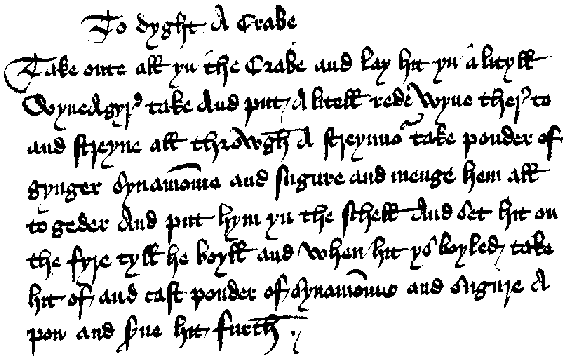 To dyght A Crabe
Take oute all yn the Crabe and lay hit yn a lityll
Vyneagyr take And put A litell rede Wyne ther to
and streyne all throwgh A streynor take pouder of
gynger Synamome and sugure and menge hem all
to geder And putt hym yn the schell And Set hit on
the fyre tyll he boyll and when hit ys boyled take
hit of and cast pouder of Synamome and Sugure A
pon and sue hit furth